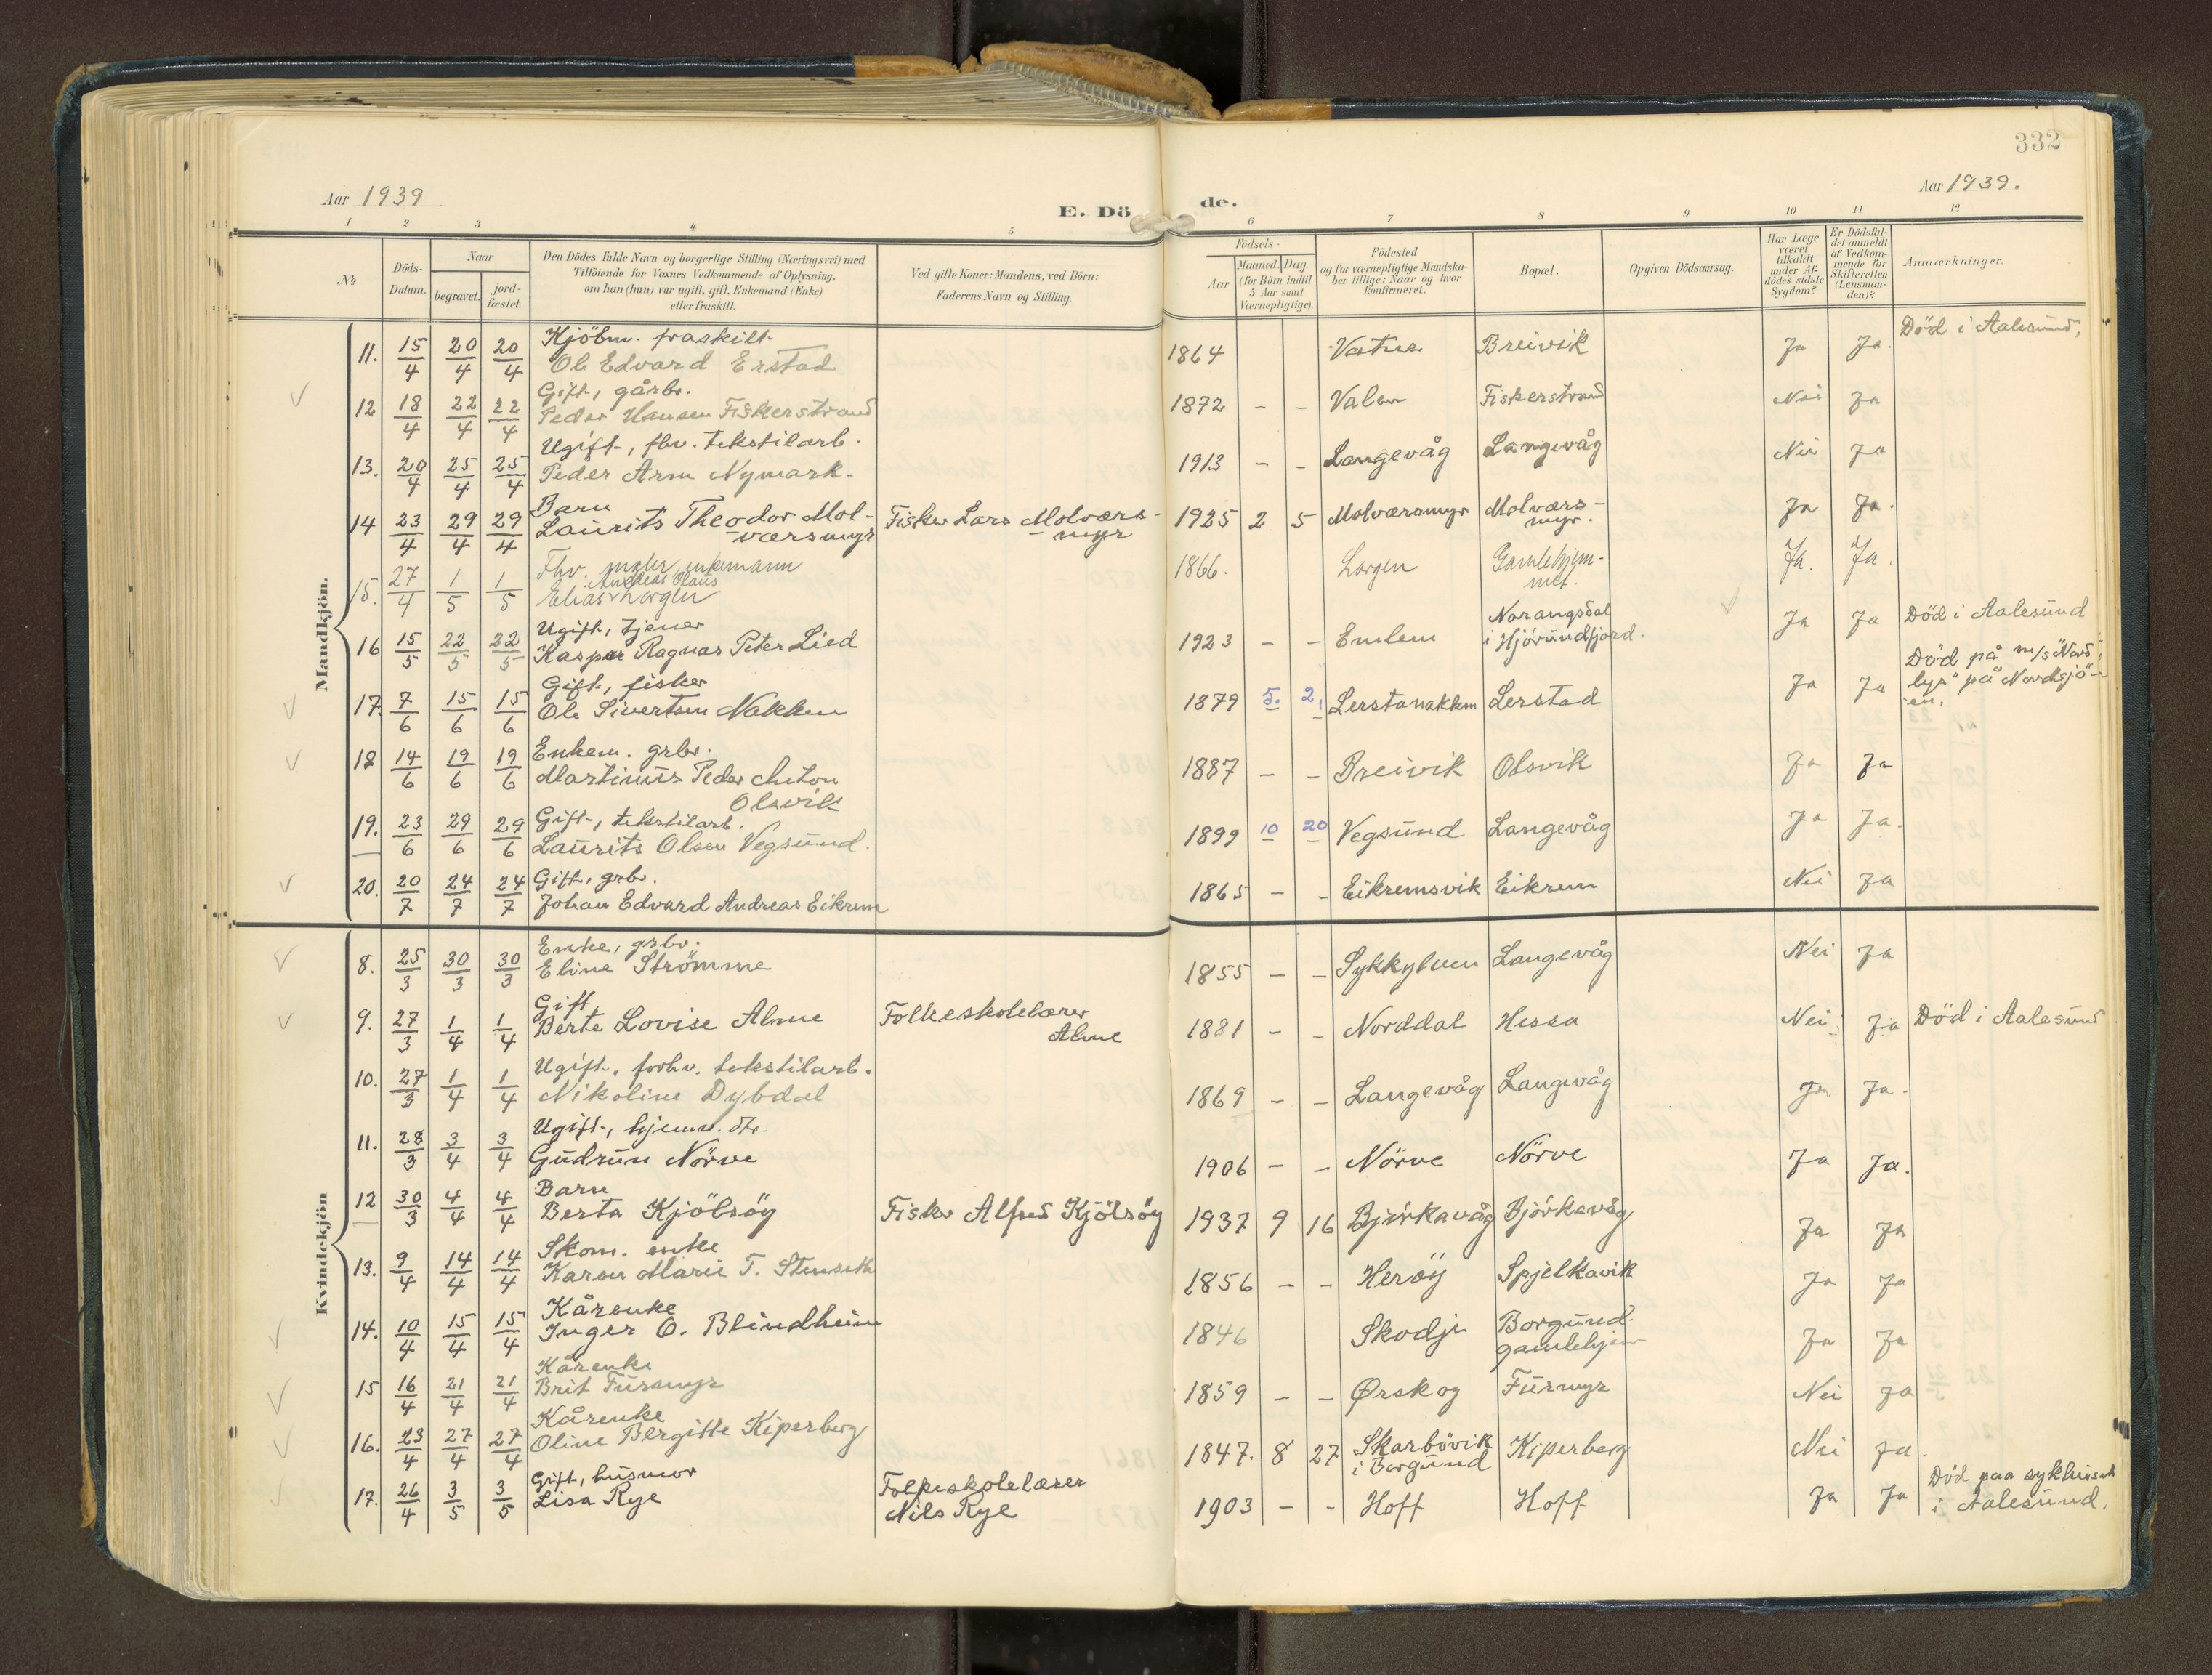 332
Aar 1939
Aar 1939.
E. Dö de.
1 2 3 4 5 6 7 8 9 10 11 12
No
Döds-Datum.
Naar
begravet. jord-fæstet.
Den Dödes fulde Navn og borgerlige Stilling (Næringsvei) med
Tilföiende for Voxnes Vedkommende af Oplysning,
om han (hun) var ugift, gift, Enkemand (Enke)
eller fraskilt.
Ved gifte Koner: Mandens, ved Börn:
Faderens Navn og Stilling.
Födsels-
Aar
Maaned. Dag.
(for Börn indtil
5 Aar samt
Værnepligtige).
Födested
og for værnepligtige Mandska-
ber tillige: Naar og hvor
konfirmeret.
Bopæl.
Opgiven Dödsaarsag.
Har Læge
været
tilkaldt
under Af-
dödes sidste
Sygdom?
Er Dödsfal-
det anmeldt
af Vedkom-
mende for
Skifteretten
(Lensman-
den)?
Anmærkninger.
Mandkjön.
11. 15/4 20/4 20/4 Kjöbm. fraskilt
Ole Edvard Erstad 1864 Vatne Breivik Ja Ja. Död i Aalesund.
12 18/4 22/4 22/4 Gift, gårbr.
Peder Hansen Fiskerstrand 1872 - - Valen Fiskerstrand Nei Ja
13. 20/4 25/4 25/4 Ugift, fhv. tekstilarb.
Peder Arm Nymark. 1913 - - Langevåg Langevåg Nei Ja
14 23/4 29/4 29/4 Barn
Laurits Theodor Mol-
værsmyr Fisker Lars Molværs-
myr 1925 2 5 Molværsmyr Molværs-
myr. Ja Ja.
15. 27/4 1/5 1/5 Fhv. maler, enkemann
Andreas Olaus
Elias Lorgen 1866. Lorgen Gamlehjem-
met. Ja. Ja.
16 15/5 22/5 22/5 Ugift, tjener
Kasper Ragnar Peter Lied 1923 - - Emlem Norangsdal
i Hjörundfjord. Ja Ja Död i Aalesund
17. 7/6 15/6 15/6 Gift, fisker
Ole Sivertsen Nakken 1879 5. 2. Lerstanakken Lerstad Ja Ja Död på m/s "Nord-
lys" på Nordsjö-
en.
18 14/6 19/6 19/6 Enkem. grbr.
Martinus Peder Anton
Olsvik 1887 - - Breivik Olsvik Ja Ja
19. 23/6 29/6 29/6 Gift, tekstilarb.
Laurits Olsen Vegsund. 1899 10 20 Vegsund Langevåg Ja Ja.
20. 20/7 24/7 24/7 Gift, grbr.
Johan Edvard Andreas Eikrem 1865 - - Eikremsvik Eikrem Nei Ja
Kvindekjön
8. 25/3 30/3 30/3 Enke, grbr.
Eline Strömme 1855 - - Sykkylven Langevåg Nei Ja
9. 27/3 1/4 1/4 Gift
Berte Lovise Alme Folkeskolelærer
Alme 1881 - - Norddal Hessa Nei Ja Död i Aalesund
10. 27/3 1/4 1/4 Ugift, forhv. tekstilarb.
Nikoline Dybdal 1869 - - Langevåg Langevåg Ja Ja.
11. 28/3 3/4 3/4 Ugift, hjemmv. dtr.
Gudrun Nörve 1906 - - Nörve Nörve Ja Ja.
12 30/3 4/4 4/4 Barn
Berta Kjölsöy Fisker Alfred Kjölsöy 1937 9 16 Björkavåg Björkavåg Ja Ja
13. 9/4 14/4 14/4 Skom. enke
Karen Marie T. Stenseth 1856 - - Heröy Spjelkavik Ja Ja
14. 10/4 15/4 15/4 Kårenke
Inger O. Blindheim 1846 Skodje Borgund.
gamlehjem Ja Ja
15 16/4 21/4 21/4 Kårenke
Brit Furmyr 1859 - - Ørskog Furmyr Nei Ja
16. 23/4 27/4 27/4 Kårenke
Oline Bergitte Kiperberg 1847. 8 27 Skarbövik
i Borgund Kiperberg Nei Ja.
17. 26/4 3/5 3/5 Gift, husmor
Lisa Rye Folkeskolelærer
Nils Rye 1903 - - Hoff Hoff Ja Ja Död paa sykehuset
i Aalesund.